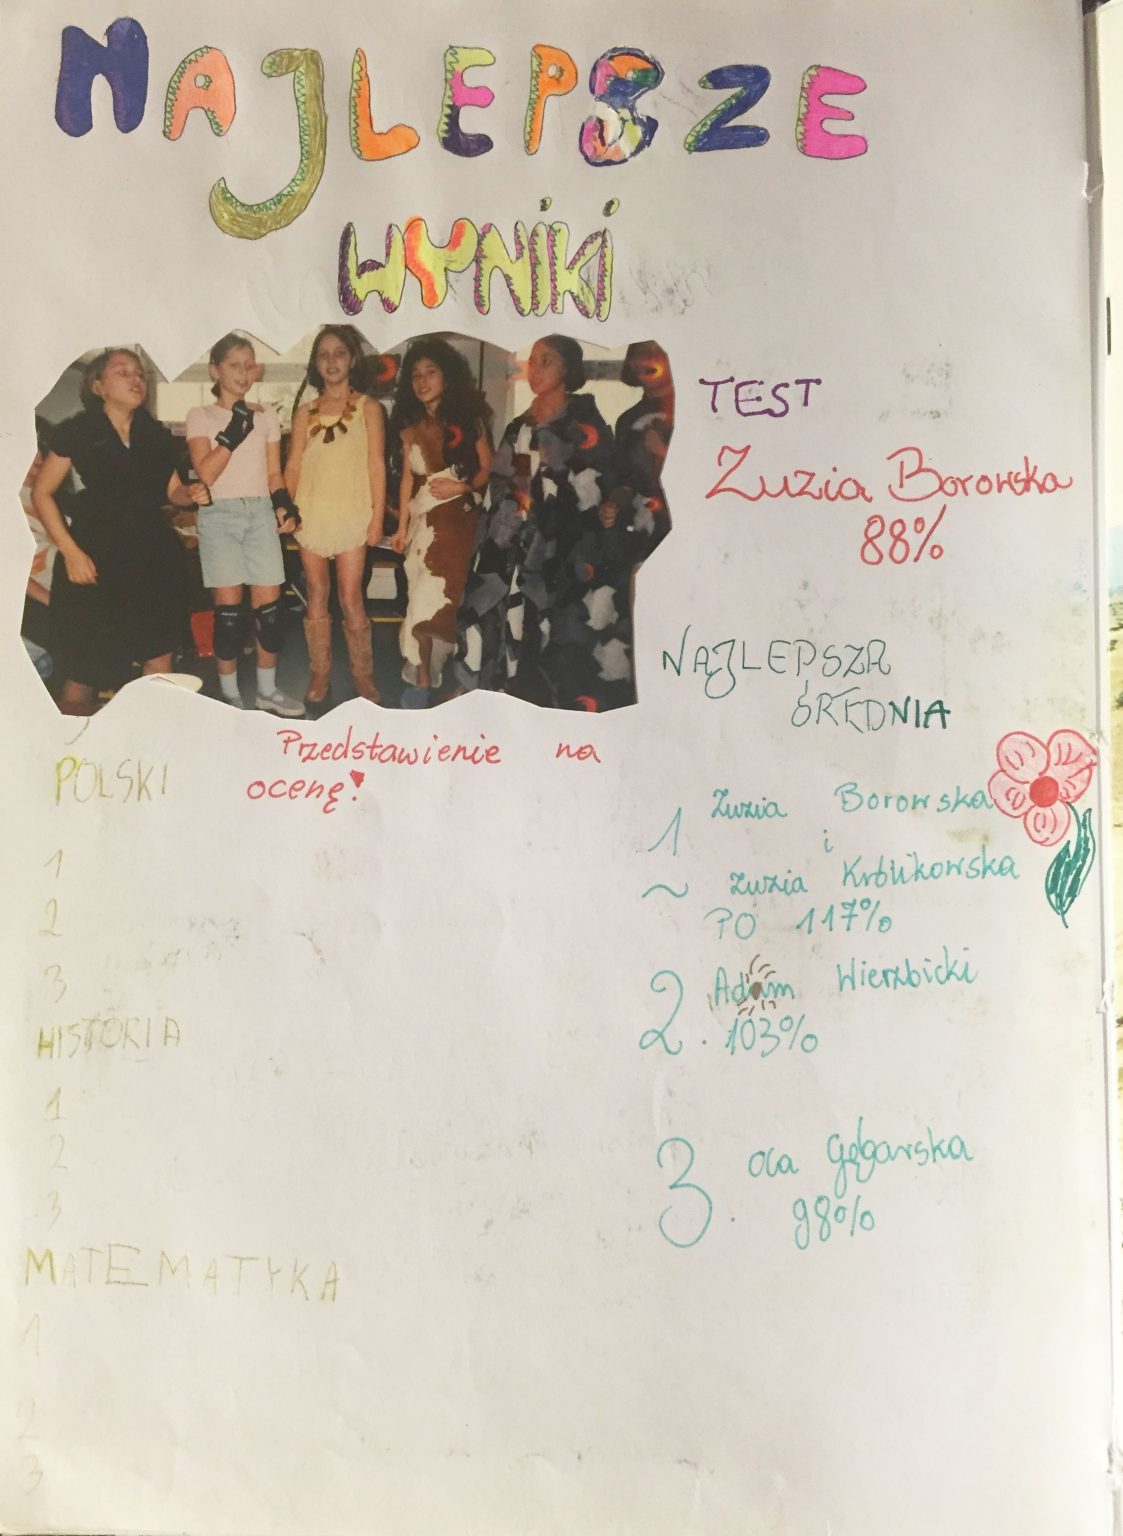 NAJLEPSZE
WYNIKI
TEST
Zuzia Borowska
88%
NAJLEPSZA
ŚREDNIA
Przedstawienie na
ocenę!
POLSKI
1
2
3
HISTORIA
1
2
3
MATEMATYKA
1
2
3
1 Zuzia Borowska
i
~ Zuzia Królikowska
PO 117%
2. Adam Wierzbicki
103%
3. Ola Gębarska
98%